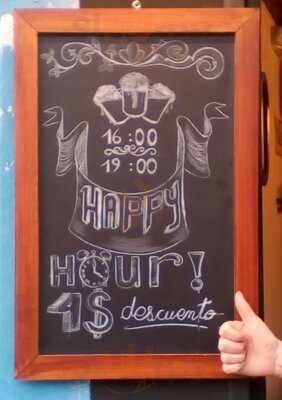 HAPPY
16:00
19:00
HAPPY
HOUR!
1$ descuento